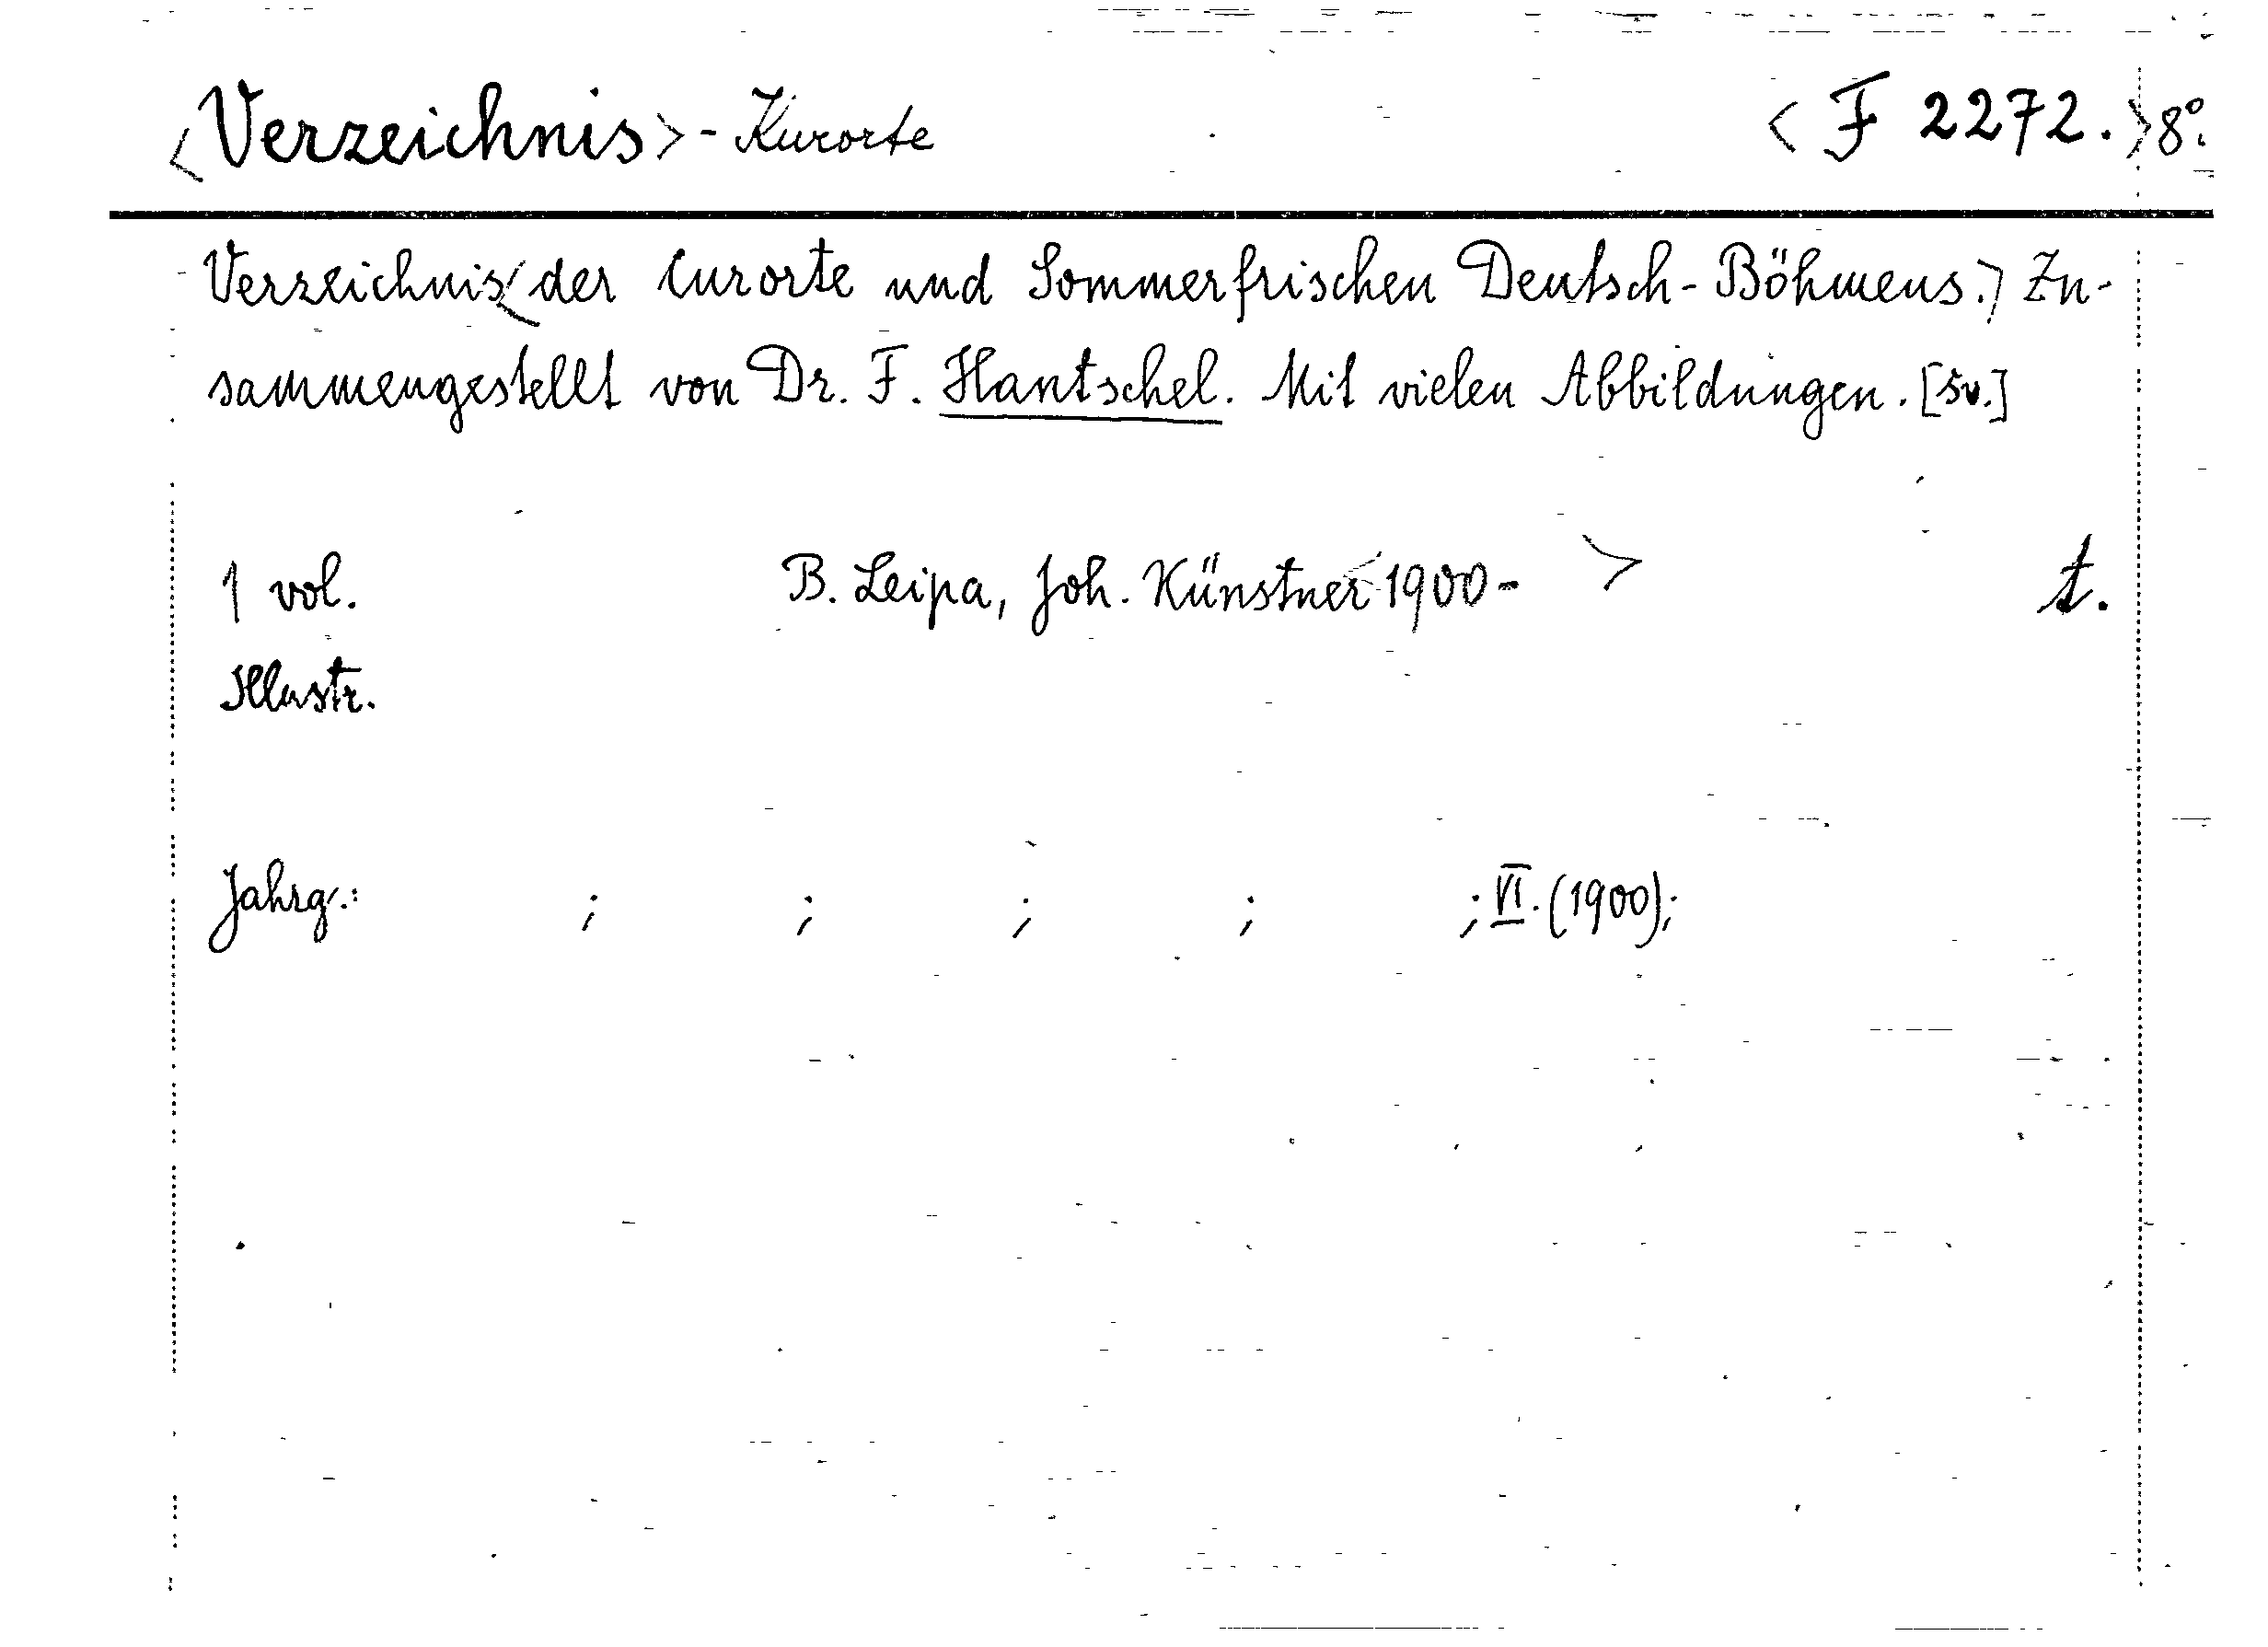 <Verzeichnis> - Kurorte <F 2272.> 8°.
Verzeichnis <der Curorte und Sommerfrischen Deutsch-Böhmens.> Zu-
sammengestellt von Dr. F. Hantschel. Mit vielen Abbildungen. [5v.]
1 vol. B. Leipa, Joh. Künstner 1900- > t.
Illustr.
Jahrg.: ; ; ; ; ; VI. (1900);